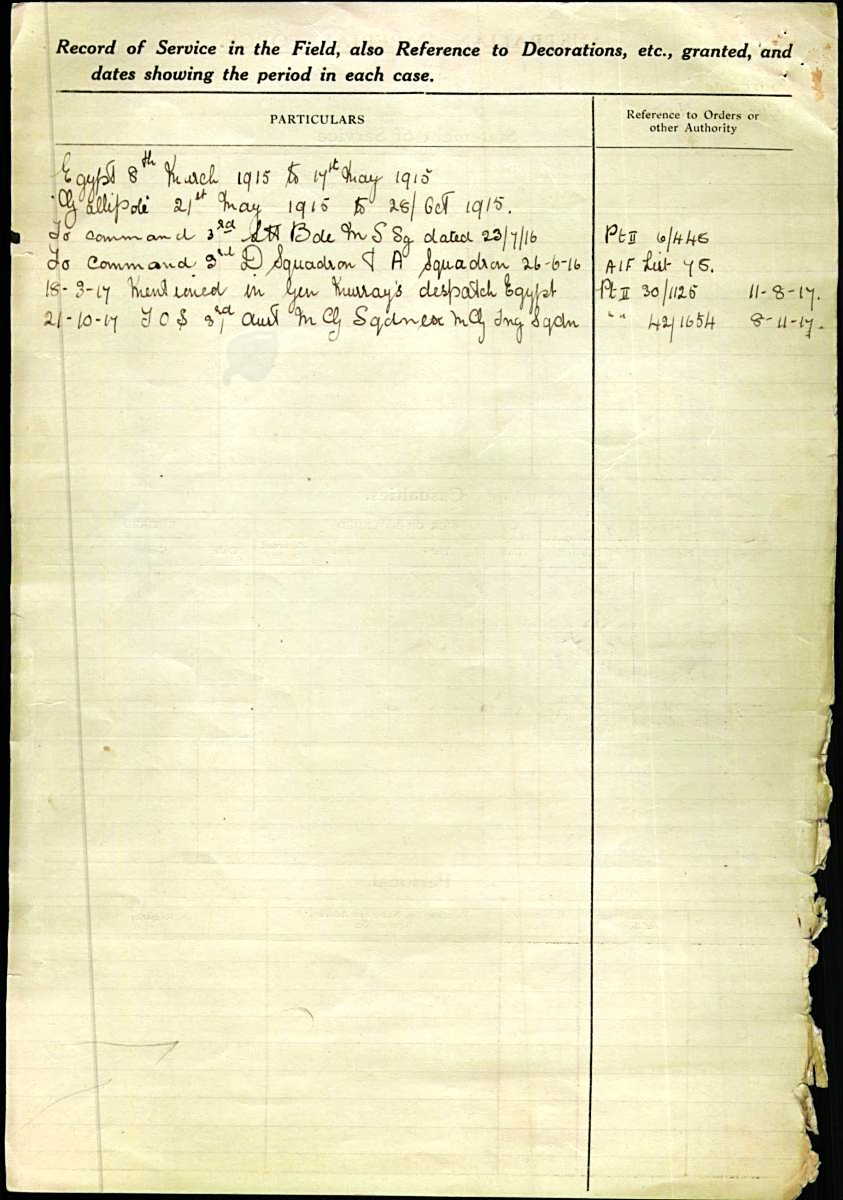 Record of Service in the Field, also Reference to Decorations, etc., granted, and
dates showing the period in each case.
PARTICULARS
Reference to Orders or
other Authority
Egypt 8th March 1915 to 17th May 1915
Gallipoli 21st May 1915 to 28/Oct 1915.
To command 3rd LH Bde M S Sg dated 23/7/16 Pt II 6/445
To command 3rd D Squadron & A Squadron 26-6-16 AIF List 75.
18-3-17 Mentioned in Gen Murray's despatch Egypt Pt II 30/1125 11-8-17.
21-10-17 TOS 3rd Aust M G Sqdn ex M G Tng Sqdn " " 42/1654 8-11-17.